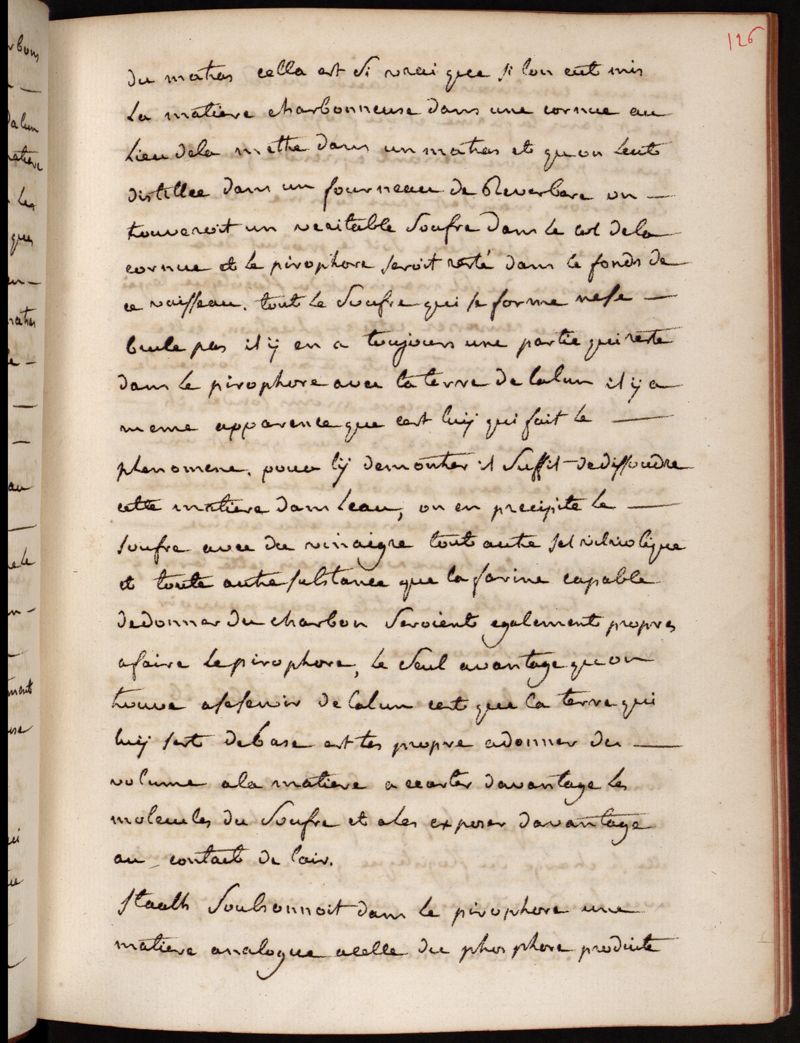 126
du matras cella est si vrai que si lon eut mis
La matiere charbonneuse dans une cornue au
Lieu dela mettre dans un matras et quon Leut
distillée dans un fourneau de Reverbere on —
trouveroit un veritable Soufre dans Le col dela
cornue et le pirophore seroit resté dans le fonds de
ce vaisseau. tout Le Soufre qui se forme nese —
brule pas il ÿ en a toujours une partie qui reste
dans Le pirophore avec la terre de Lalun il ÿ a
meme apparence que cest luÿ qui fait le —
phenomene. pour lÿ demontrer il Suffit de dissoudre
cette matiere dans Leau, on en precipite le —
soufre avec du vinaigre tout autre sel vitriolique
et toute autre substance que la farine capable
dedonner du charbon Seroient egalement propres
afaire Le pirophore, le Seul avantage quon
trouve ase servir de lalun cest que la terre qui
luÿ sert debase est tres propre adonner du —
volume ala matiere a ecarter davantage les
molecules du Soufre et ales exposer davantage
au contact de lair.
Staalh Soubsonnoit dans le pirophore une
matiere analogue acelle du phosphore produite